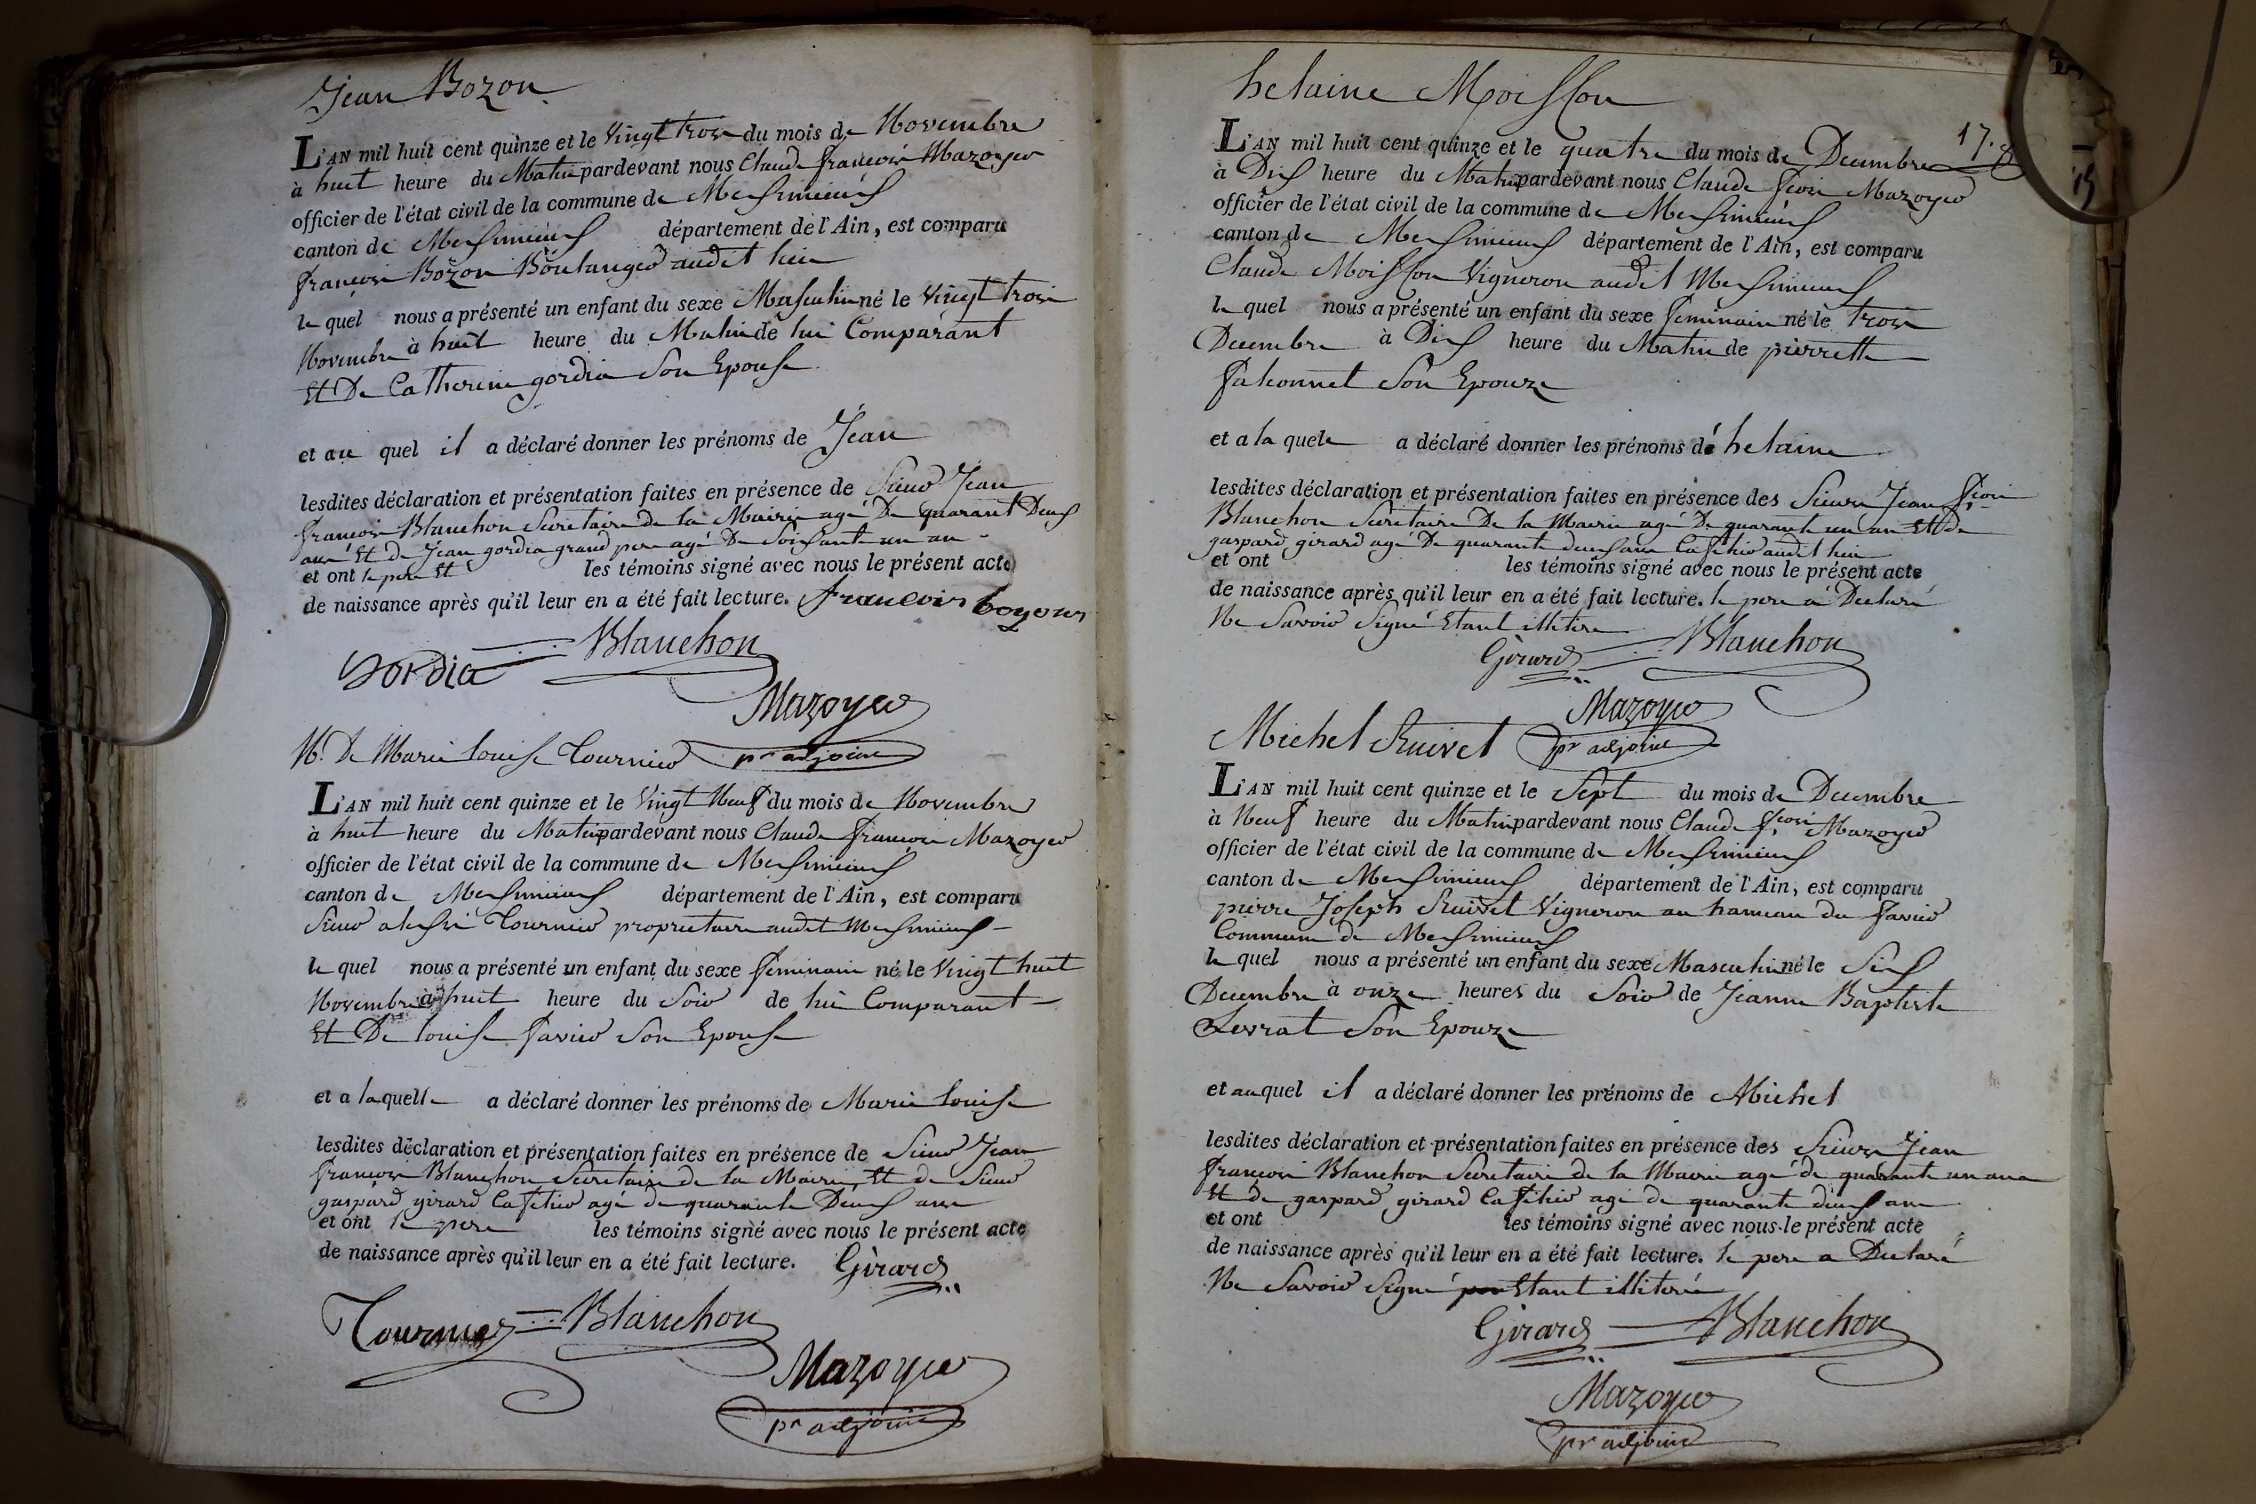 Jean Bozon
L'AN mil huit cent quinze et le Vingt trois du mois de Novembre
à huit heure du Matin pardevant nous Claude francois Mazoyer
officier de l'état civil de la commune de Messimieux
canton de Messimieux département de l'Ain, est comparu
francois Bozon Boulanger audit lieu
le quel nous a présenté un enfant du sexe Masculin né le Vingt trois
Novembre à huit heure du Matin de lui Comparant
Et De Catherine gordia Son Epouse
et au quel il a déclaré donner les prénoms de Jean
lesdites déclaration et présentation faites en présence de Sieur Jean
francois Blanchon Secretaire de la Mairie agé De quarant Deux
ans Et de Jean gordia grand pere agé De Soissante un an
et ont le pere Et les témoins signé avec nous le présent acte
de naissance après qu'il leur en a été fait lecture. francois bozon
Gordia Blanchon
Mazoyer
pr adjoint
N. De Marie Louise Tournier
L'AN mil huit cent quinze et le Vingt Neuf du mois de Novembre
à huit heure du Matin pardevant nous Claude francois Mazoyer
officier de l'état civil de la commune de Messimieux
canton de Messimieux département de l'Ain, est comparu
Sieur Tournier proprietaire audit Messimieux
le quel nous a présenté un enfant du sexe feminain né le Vingt huit
Novembre à huit heure du Soir de lui Comparant
Et De louise favier Son Epouse
et a laquelle a déclaré donner les prénoms de Marie louise
lesdites déclaration et présentation faites en présence de Sieur Jean
francois Blanchon Secretaire de la Mairie, Et de Sieur
gaspard girard Caffetier agé de quarante Deux ans
et ont le pere les témoins signé avec nous le présent acte
de naissance après qu'il leur en a été fait lecture. Girard
Tournier Blanchon
Mazoyer
pr adjoint
helaine Moisson
17.
L'AN mil huit cent quinze et le quatre du mois de Decembre
à Dix heure du Matin pardevant nous Claude fcois Mazoyer
officier de l'état civil de la commune de Messimieux
canton de Messimieux département de l'Ain, est comparu
Claude Moisson Vigneron audit Messimieux
le quel nous a présenté un enfant du sexe feminain né le trois
Decembre à Dix heure du Matin de pierrette
falconnet Son Epouze
et a la quele a déclaré donner les prénoms de helaine
lesdites déclaration et présentation faites en présence des Sieurs Jean fcois
Blanchon Secretaire De la Mairie agé De quarante un an Et de
gaspard girard agé De quarante deux ans Caffetier audit lieu
et ont les témoins signé avec nous le présent acte
de naissance après qu'il leur en a été fait lecture. le pere a Declaré
Ne Savoir Signé Etant illitere
Girard Blanchon
Mazoyer
pr adjoint
Michel Ruivet
L'AN mil huit cent quinze et le Sept du mois de Decembre
à Neuf heure du Matin pardevant nous Claude fcois Mazoyer
officier de l'état civil de la commune de Messimieux
canton de Messimieux département de l'Ain, est comparu
pierre Joseph Ruivet Vigneron au hameau du favier
Commune de Messimieux
le quel nous a présenté un enfant du sexe Masculin né le Six
Decembre à onze heures du Soir de Jeanne Baptiste
Levrat Son Epouze
et auquel il a déclaré donner les prénoms de Michel
lesdites déclaration et présentation faites en présence des Sieurs Jean
francois Blanchon Secretaire de la Mairie agé de quarante un ans
Et de gaspard girard Caffetier agé de quarante deux ans
et ont les témoins signé avec nous le présent acte
de naissance après qu'il leur en a été fait lecture. le pere a Declaré
Ne Savoir Signé Etant illiteré
Girard Blanchon
Mazoyer
pr adjoint